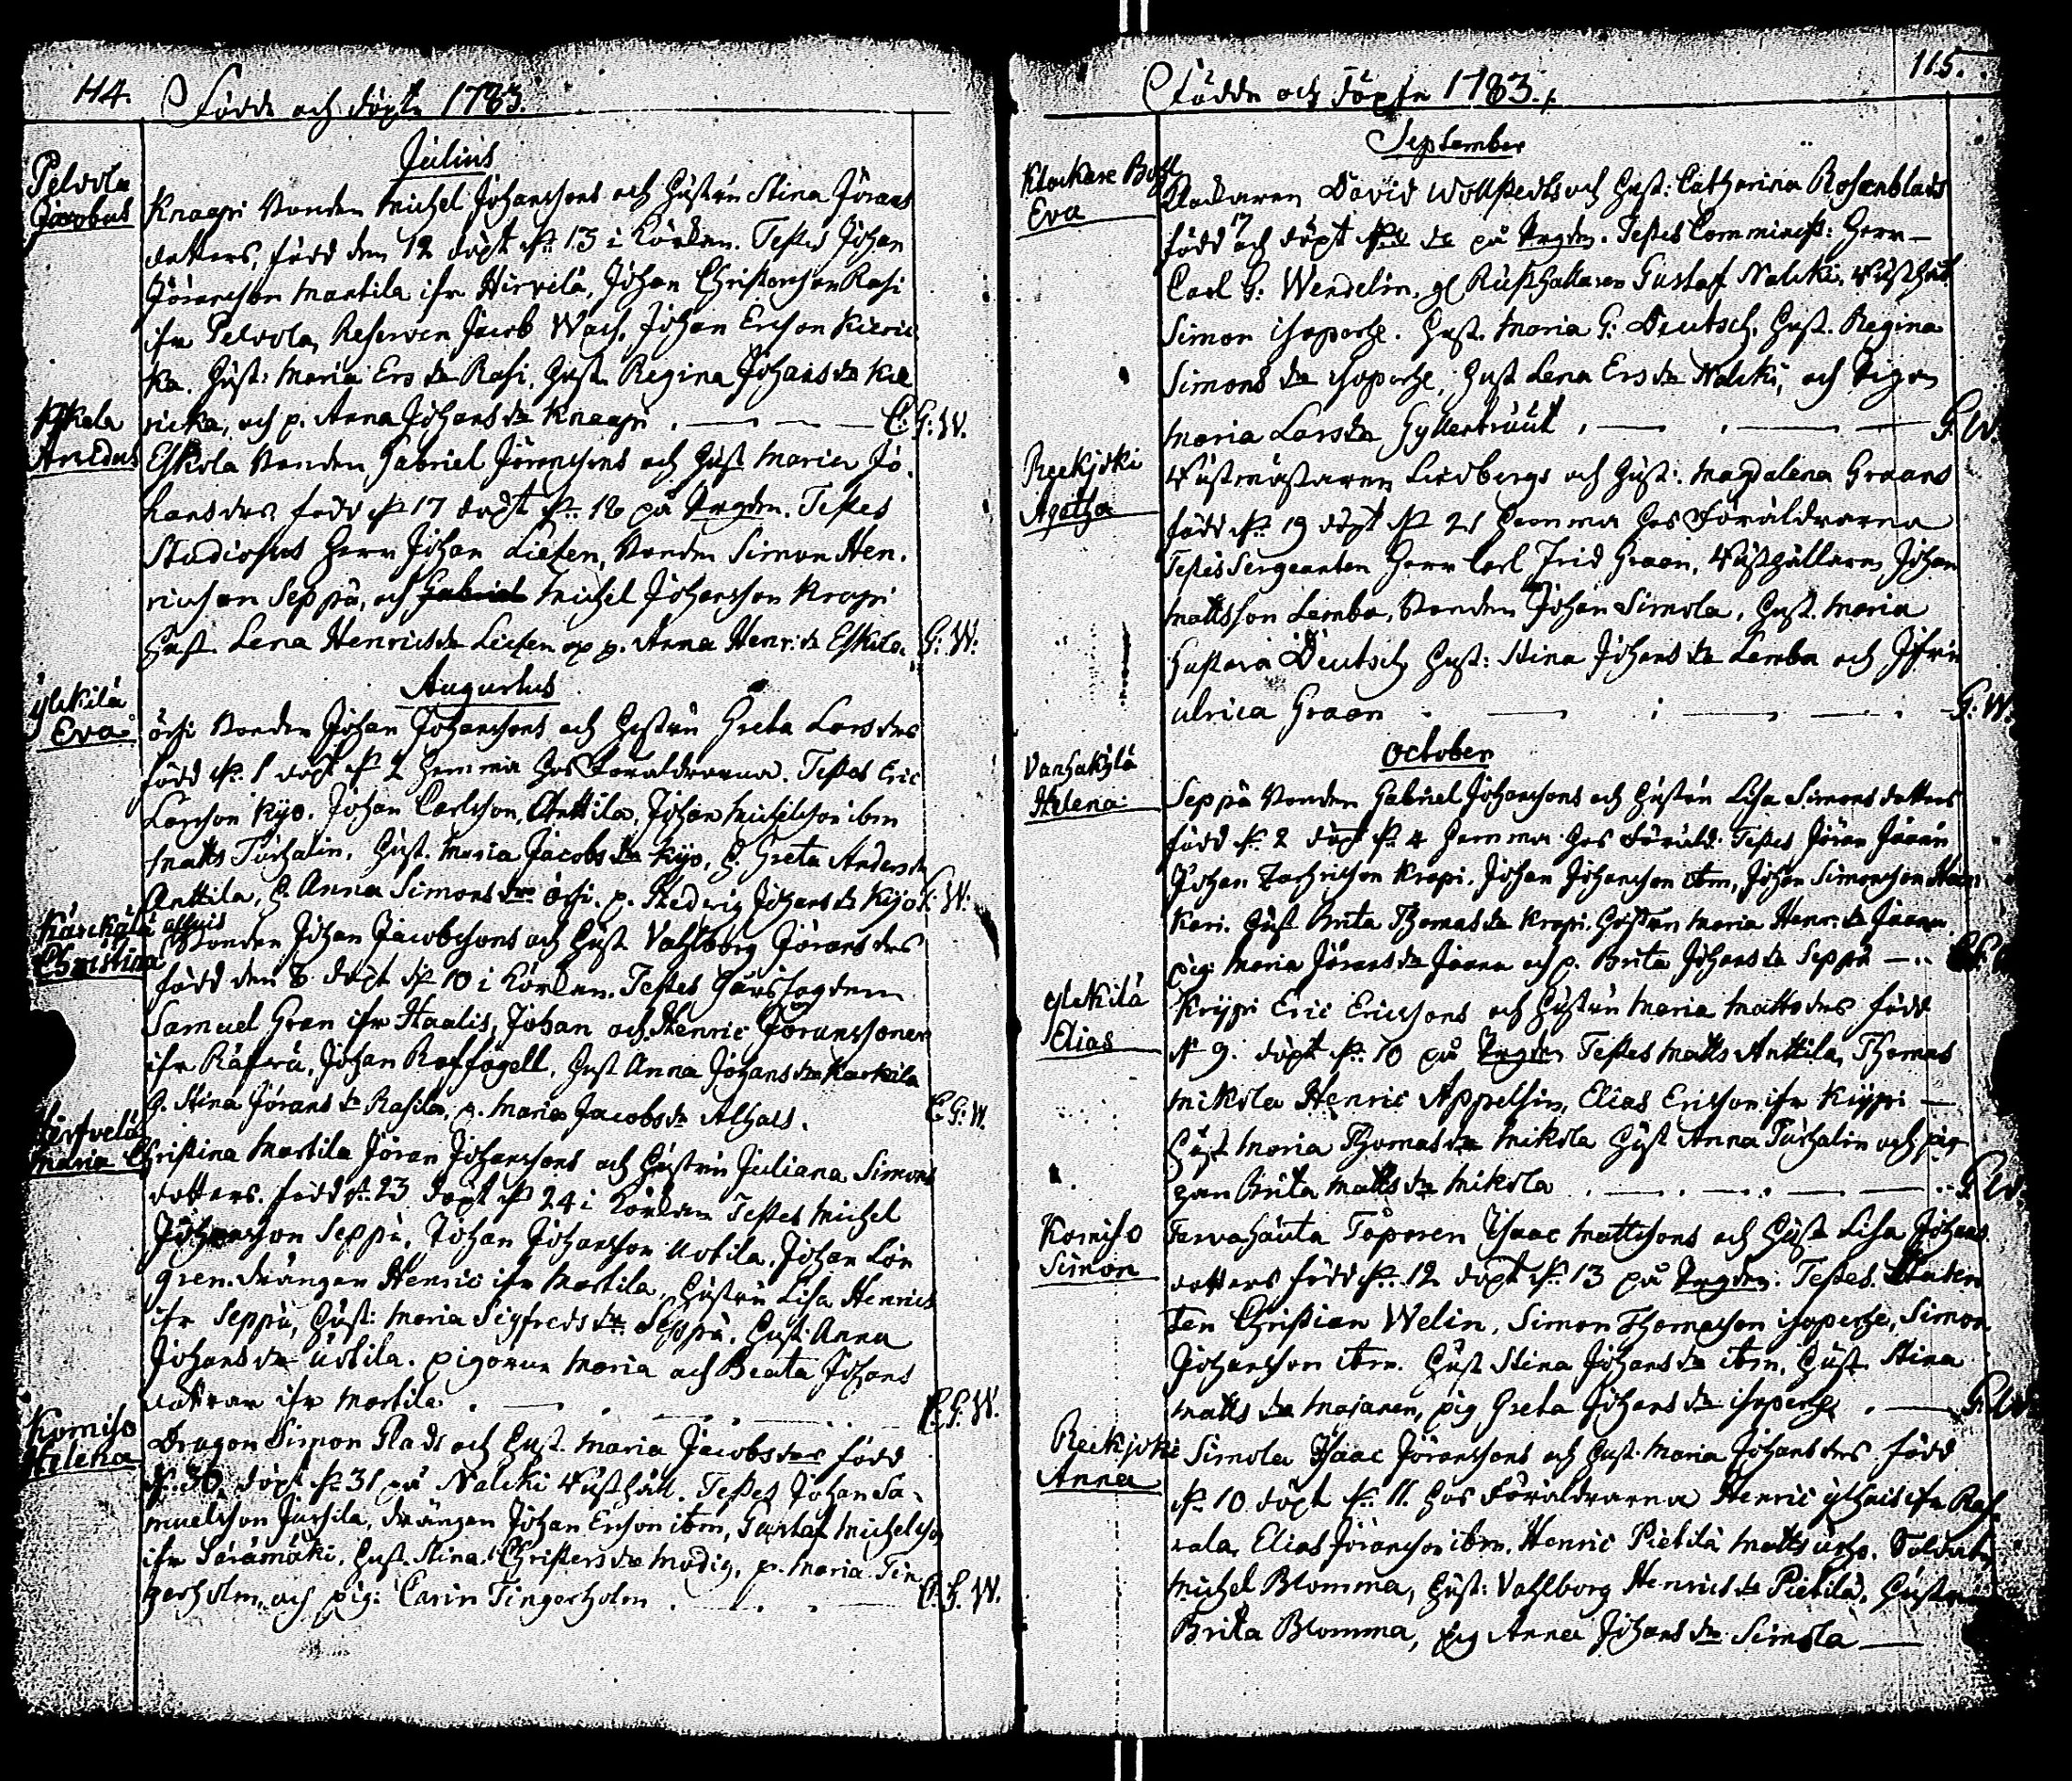 114.
Födde och döpte 1783.
Julius
Pelvola
Jacobus
Knaapi bonden Michel Johanssons och hustru Stina Jörans
dotters, född den 12 döpt d. 13 i Körkan. Testes Johan
Jöransson Martila ifr Hirvilä, Johan Christersson Rasi
ifr Pelvola, Reserven Jacob Wach, Johan Ersson Kieric
ka. Hust: Maria Ers dr Rasi, Hust. Regina Johans dr Kie
ricka, och p. Anna Johans dr Knaapi. C: G: W.
Eskola bonden Gabriel Jöranssons och Hust Maria Jo.
hansdrs född d. 17 döpt d. 18 på Prgdn. Testes
Studiosus Herr Johan Lieten, bonden Simon Hen.
ricsson Seppä, och Michel Johansson Krapi
Hust. Lena Henricsdr Lieten p. Anna Henr: dr Eskola. G: W.
Augustus
ylikilä
Eva
örsi bonden Johan Johanssons och hustru Greta Larsdrs
född d. 1 döpt d. 2 hemma hos Föräldrarna. Testes Eric
Larsson Kyö. Johan Carlsson Anttila, Johan Michelsson ibm
Matts Turhalin. Hust. Maria Jacobs dr Kyö, H. Greta Anders dr
Anttila, H. Anna Simons dr örsi. p. Hedvig Johans dr Kyö. G: W:
Christina
bonden Johan Jacobssons och Hust Vahlborg Jörans drs
född den 8 döpt d. 10 i Körkan. Testes
Samuel Gran ifr Haalis, Johan och Henric Jöranssoner
ifr Räfvä, Johan Roffogell, Hust Anna Johans dr Karkila
H. Stina Jörans dr Rasila, p. Maria Jacobs dr Alhais. C: G: W.
Maria Christina
Martila Jöran Johanssons och Hustru Juliana Simons
dotters. född d. 23 döpt d. 24 i Körkan Testes Michel
Johansson Seppä, Johan Johansson Uotila. Johan Lön
gren. Drängar Henric ifr Martila, Hustru Lisa Henrics
ifr Seppä, Hust: Maria Sigfreds dr Seppä. Hust: Anna
Johans dr Uotila. pigorna Maria och Beata Johans
dottrar ifr Martila. C: G: W.
Komiso
Helena
Dragon Simon Glads och Hust. Maria Jacobsdrs född
d. 30, döpt d. 31 på Nalcki Rusthåll. Testes Johan Sa
muelsson Jussila, drängen Johan Ersson ibm, Gustaf Michelsson
ifr Särämäki. Hust. Stina Christers dr Modig, p. Maria Tin
gerholm, och pig: Carin Tingerholm. C. G. W.
115.
Födde och Döpte 1783.
September
Klockare Bohl
Eva
Klockaren David Wollstedts och Hust: Catharina Rosenblads
född 17 och döpt på Prgdn. Testes Comminist: Herr
Carl G: Wendelin, Rusthållaren Gustaf Nalcki, Rusthål
Simon isoperhe. Hust. Maria G: Deutsch, Hust. Regina
Simons dr isoperhe, Hust Lena Ers dr Nalcki, och Pigan
Maria Lars dr Gyllentruut. G: W.
Reckjoki
Agatha
Rustmästaren Lindbergs och Hust: Magdalena Graans
född d. 19 döpt d. 21 hemma hos Föräldrarna
Testes Sergeanten Herr Carl Frid Graan, Rusthållaren Johan
Mattsson Lemba, bonden Johan Simola, Hust. Maria
Gustava Deutsch, Hust: Stina Johans dr Lemba och Jfru
Ulrica Graan. G: W.
October
Vanhakylä
Helena
Seppä bonden Gabriel Johanssons och Hustru Lisa Simonsdotters
född d. 2 döpt d. 4 hemma hos Föräld: Testes Jöran Jaara
Johan Zachrisson Krapi, Johan Johansson ibm, Johan Simonsson
Kari. Hust Brita Thomas dr Krapi. Hustru Maria Henr: dr Jaara
pig: Maria Jörans dr Jaara och p. Brita Johans dr Seppä
ylikilä
Elias
Kryppi Eric Ericssons och Hustru Maria Mattsdrs född
d. 9. döpt d. 10 på Prgdn Testes Matts Anttila, Thomas
Mikola Henric Appelsin, Elias Ericsson ifr Kyppi
Hust Maria Thomas dr Mikola Hust Anna Turhalin och pi
gan Brita Matts dr Mikola. G: W.
Komiso
Simon
Torparen Isaac Mattssons och Hust Lisa Johans
dotters född d. 12 döpt d. 13 på Prgdn. Testes. Studen
ten Christian Welin, Simon Thomasson isoperhe, Simon
Johansson ibm. Hust Stina Johans dr ibm, Hust. Stina
Matts dr Majanen, pig Greta Johans dr isoperhe. G: W.
Reckjoki
Anna
Simola Isaac Jöranssons och Hust. Maria Johansdrs född
d. 10 döpt d. 11. hos Föräldrarna Henric ythais ifr Raf
vala, Elias Jöransson ibm. Henric Pietilä Matts Soldaten
Michel Blomma, Hust: Vahlborg Henrics dr Pietilä, Hustru
Brita Blomma, pig Anna Johans dr Simola